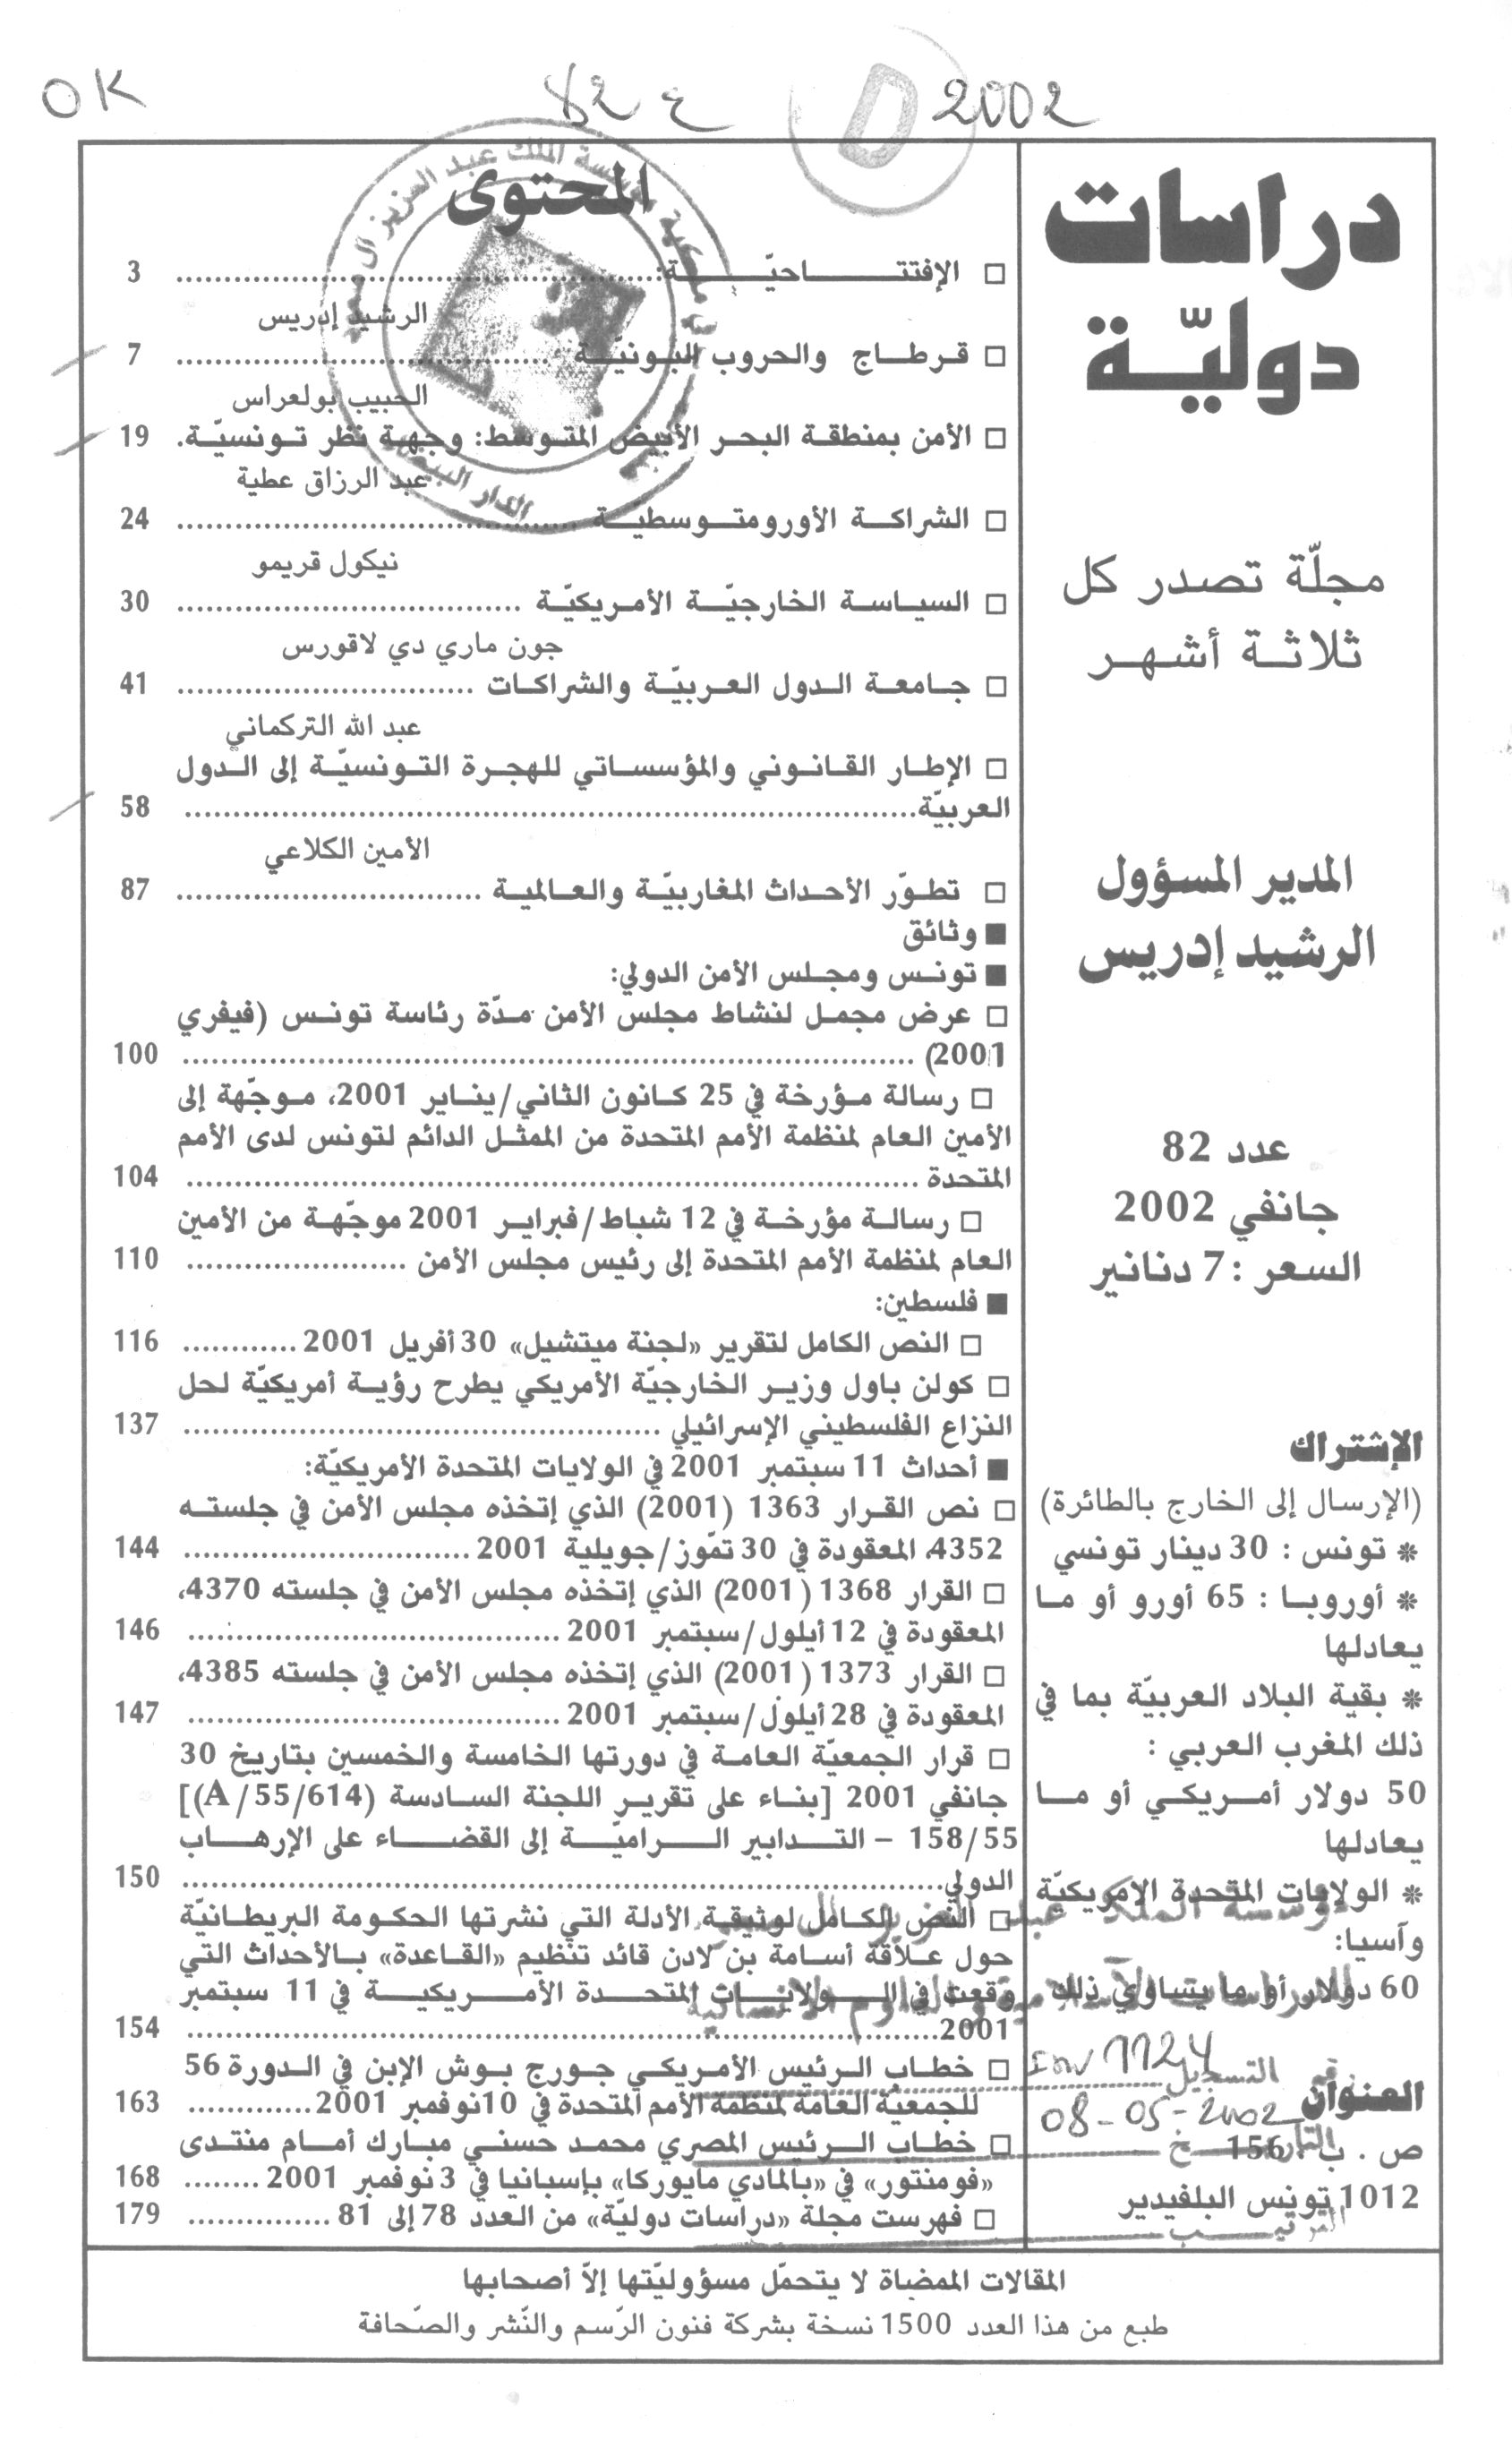 OK
82 ع
D
2002
دراسات
دوليّة
مجلّة تصدر كل
ثلاثة أشهر
المدير المسؤول
الرشيد إدريس
عدد 82
جانفي 2002
السعر : 7 دنانير
الإشتراك
(الإرسال إلى الخارج بالطائرة)
* تونس : 30 دينار تونسي
* أوروبا : 65 أورو أو ما
يعادلها
* بقية البلاد العربيّة بما في
ذلك المغرب العربي :
50 دولار أمريكي أو ما
يعادلها
* الولايات المتحدة الامريكيّة
وآسيا:
60 دولار أو ما يساوي ذلك
Inv 1124
رقم التسجيل
العنوان
08-05-2002
التاريخ
ص . ب 156
1012 تونس البلفيدير
المحتوى
□ الإفتتاحيّة: 3
الرشيد إدريس
□ قرطاج والحروب البونيّة 7
الحبيب بولعراس
□ الأمن بمنطقة البحر الأبيض المتوسط: وجهة نظر تونسيّة. 19
عبد الرزاق عطية
□ الشراكة الأورومتوسطية 24
نيكول قريمو
□ السياسة الخارجيّة الأمريكيّة 30
جون ماري دي لاقورس
□ جامعة الدول العربيّة والشراكات 41
عبد الله التركماني
□ الإطار القانوني والمؤسساتي للهجرة التونسيّة إلى الدول
العربيّة 58
الأمين الكلاعي
□ تطوّر الأحداث المغاربيّة والعالمية 87
■ وثائق
■ تونس ومجلس الأمن الدولي:
□ عرض مجمل لنشاط مجلس الأمن مدّة رئاسة تونس (فيفري
2001) 100
□ رسالة مؤرخة في 25 كانون الثاني/يناير 2001، موجّهة إلى
الأمين العام لمنظمة الأمم المتحدة من الممثل الدائم لتونس لدى الأمم
المتحدة 104
□ رسالة مؤرخة في 12 شباط/فبراير 2001 موجّهة من الأمين
العام لمنظمة الأمم المتحدة إلى رئيس مجلس الأمن 110
■ فلسطين:
□ النص الكامل لتقرير «لجنة ميتشيل» 30 أفريل 2001 116
□ كولن باول وزير الخارجيّة الأمريكي يطرح رؤية أمريكيّة لحل
النزاع الفلسطيني الإسرائيلي 137
■ أحداث 11 سبتمبر 2001 في الولايات المتحدة الأمريكيّة:
□ نص القرار 1363 (2001) الذي إتخذه مجلس الأمن في جلسته
4352، المعقودة في 30 تمّوز/جويلية 2001 144
□ القرار 1368 (2001) الذي إتخذه مجلس الأمن في جلسته 4370،
المعقودة في 12 أيلول/سبتمبر 2001 146
□ القرار 1373 (2001) الذي إتخذه مجلس الأمن في جلسته 4385،
المعقودة في 28 أيلول/سبتمبر 2001 147
□ قرار الجمعيّة العامة في دورتها الخامسة والخمسين بتاريخ 30
جانفي 2001 [بناء على تقرير اللجنة السادسة (A/55/614)]
158/55 – التدابير الراميّة إلى القضاء على الإرهاب
الدولي 150
□ النص الكامل لوثيقة الأدلة التي نشرتها الحكومة البريطانيّة
حول علاقة أسامة بن لادن قائد تنظيم «القاعدة» بالأحداث التي
وقعت في الولايات المتحدة الأمريكية في 11 سبتمبر
2001 154
□ خطاب الرئيس الأمريكي جورج بوش الإبن في الدورة 56
للجمعيّة العامة لمنظمة الأمم المتحدة في 10 نوفمبر 2001 163
□ خطاب الرئيس المصري محمد حسني مبارك أمام منتدى
«فومنتور» في «بالمادي مايوركا» بإسبانيا في 3 نوفمبر 2001 168
□ فهرست مجلة «دراسات دوليّة» من العدد 78 إلى 81 179
المقالات الممضاة لا يتحمّل مسؤوليّتها إلاّ أصحابها
طبع من هذا العدد 1500 نسخة بشركة فنون الرّسم والنّشر والصّحافة